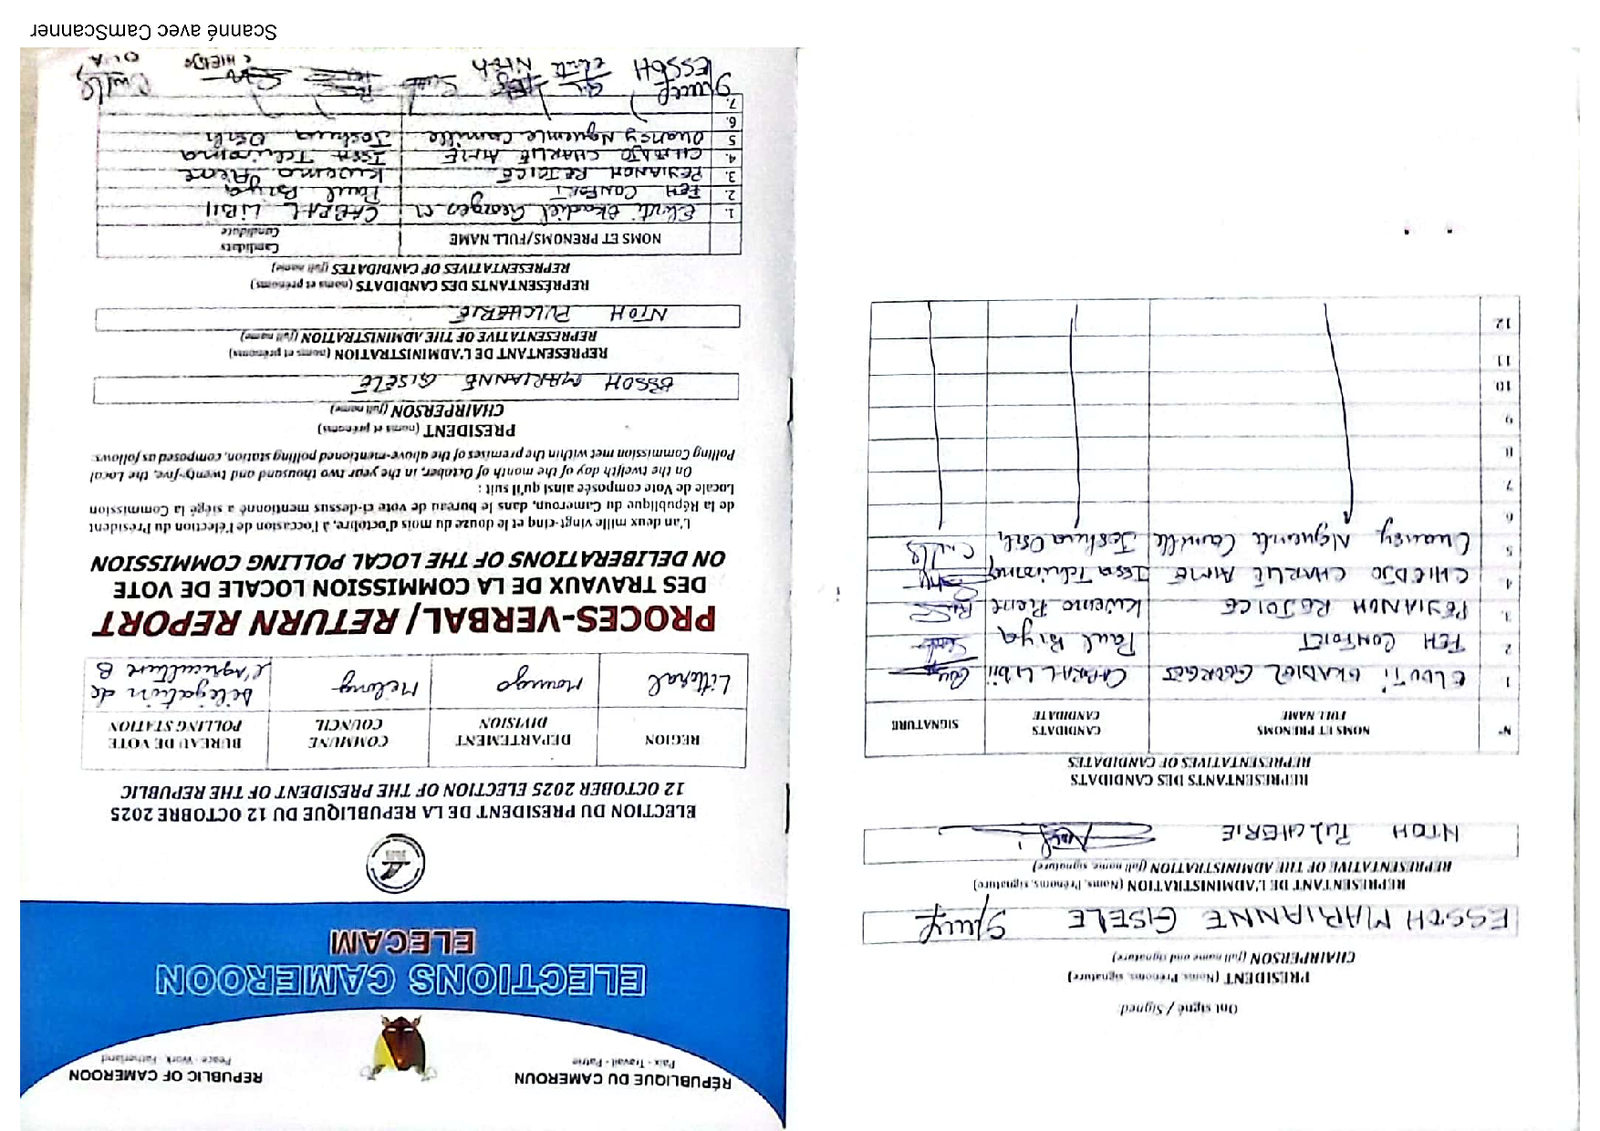 RÉPUBLIQUE DU CAMEROUN
Paix - Travail - Patrie
REPUBLIC OF CAMEROON
Peace - Work - Fatherland
ELECTIONS CAMEROON
ELECAM
ELECTION DU PRESIDENT DE LA REPUBLIQUE DU 12 OCTOBRE 2025
12 OCTOBER 2025 ELECTION OF THE PRESIDENT OF THE REPUBLIC
REGION DEPARTEMENT DIVISION COMMUNE COUNCIL BUREAU DE VOTE POLLING STATION
Littoral Moungo Mélong Délégation de l'Agriculture B
PROCES-VERBAL/ RETURN REPORT
DES TRAVAUX DE LA COMMISSION LOCALE DE VOTE
ON DELIBERATIONS OF THE LOCAL POLLING COMMISSION
L'an deux mille vingt-cinq et le douze du mois d'octobre, à l'occasion de l'élection du Président
de la République du Cameroun, dans le bureau de vote ci-dessus mentionné a siégé la Commission
Locale de Vote composée ainsi qu'il suit :
On the twelfth day of the month of October, in the year two thousand and twenty-five, the Local
Polling Commission met within the premises of the above-mentioned polling station, composed as follows:
PRESIDENT (noms et prénoms)
CHAIRPERSON (full name)
ESSOH MARIANNE GISELE
REPRESENTANT DE L'ADMINISTRATION (noms et prénoms)
REPRESENTATIVE OF THE ADMINISTRATION (full name)
NTOH PULCHERIE
REPRÉSENTANTS DES CANDIDATS (noms et prénoms)
REPRESENTATIVES OF CANDIDATES (full name)
NOMS ET PRENOMS/FULL NAME Candidats Candidate
1. Ekadiel Georges CABRAL LIBII
2. FEH CONFORT Paul Biya
3. REJOICE Kwemo Pierre
4. CHIEDJO CHARLIE AIME ISSA Tchiroma
5 Nguemle Camille Joshua Osih
6.
7.
ESSOH NTOH CHIEDJO
Ont signé / Signed:
PRESIDENT (Noms, Prénoms, signature)
CHAIRPERSON (full name and signature)
ESSOH MARIANNE GISELE
REPRESENTANT DE L'ADMINISTRATION (Noms, Prénoms, signature)
REPRESENTATIVE OF THE ADMINISTRATION (full name, signature)
NTOH PULCHERIE
REPRESENTANTS DES CANDIDATS
REPRESENTATIVES OF CANDIDATES
N° NOMS ET PRENOMS FULL NAME CANDIDATS CANDIDATE SIGNATURE
1 EKADIEL GEORGES CABRAL Libii
2 FEH CONFORT Paul Biya
3. REJOICE Kwemo Pierre
4 CHIEDJO CHARLIE AIME Issa Tchiroma
5 Nguemle Camille Joshua Osih
6
7
8
9
10
11
12
Scanné avec CamScanner